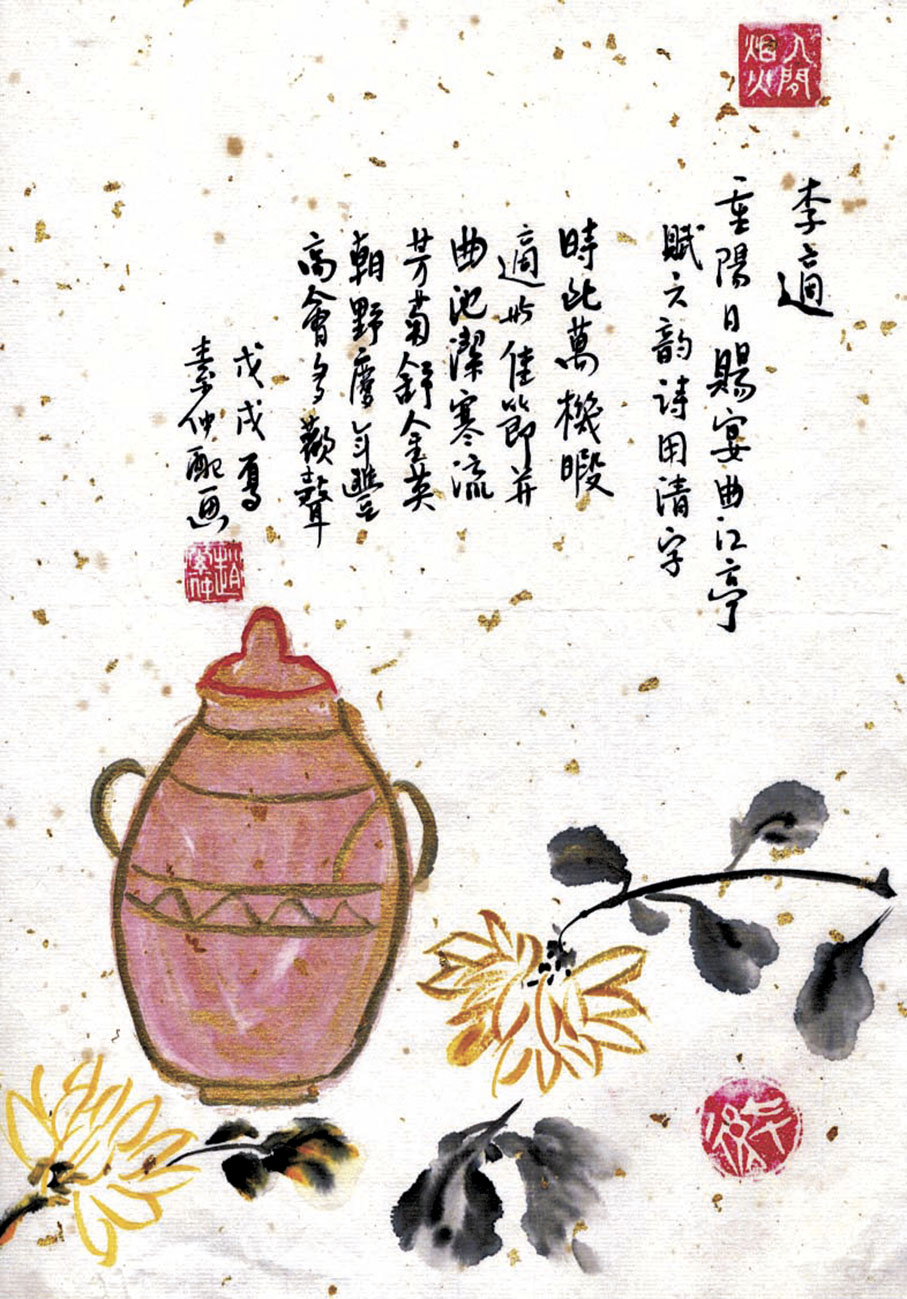 人間烟火
李適
重陽日賜宴曲江亭
賦六韵诗用清字
時此萬機暇
適與佳節并
曲池潔寒流
芳菊舒金英
朝野慶年豐
高會多歡聲
戊戌夏
素仲配画
趙素仲